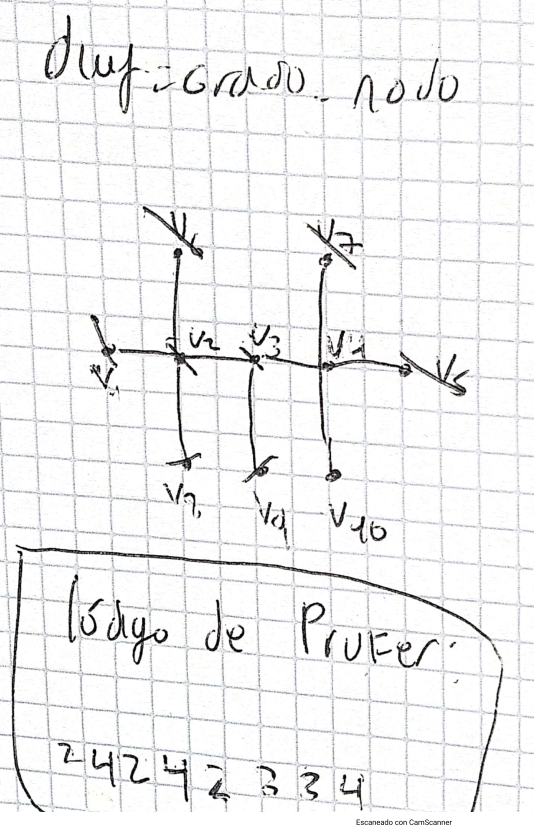 grado nodo
V6 V7
V1 V2 V3 V4 V5
V9 V10
Código de Prufer:
2 4 2 4 2 3 3 4
Escaneado con CamScanner